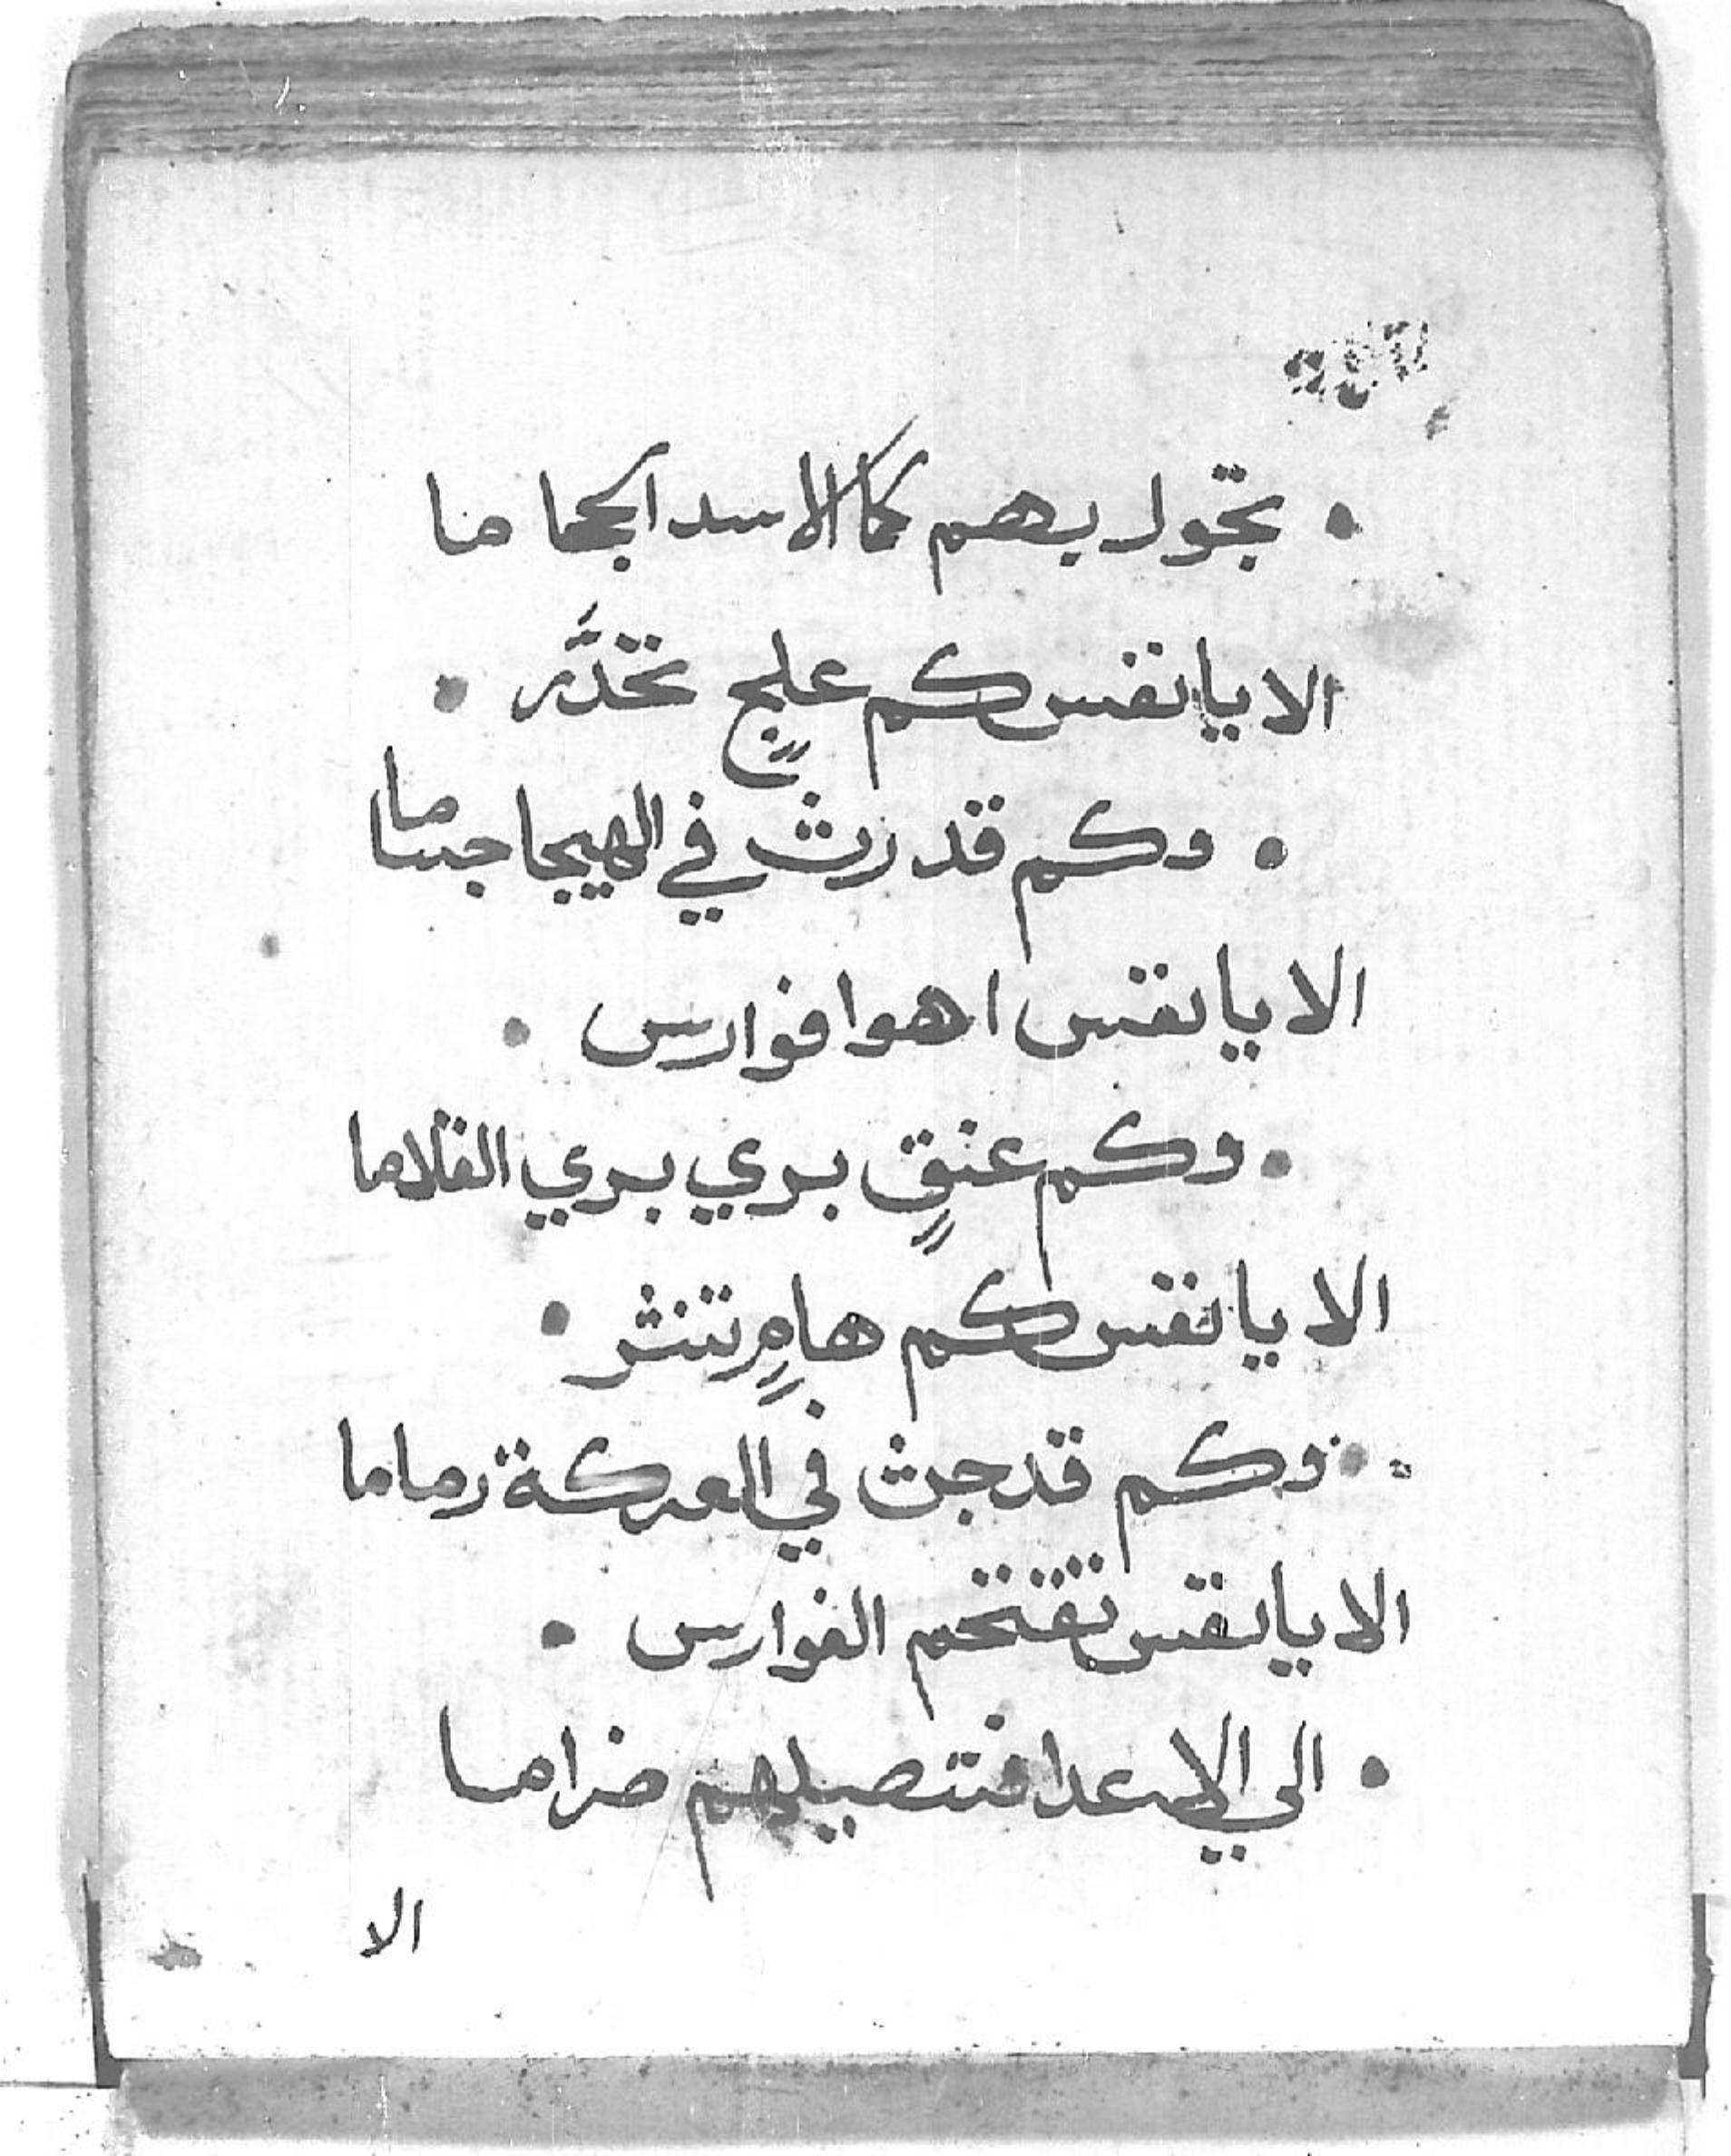 • تجول بهم كما الاسد الجحاما
الا يا نفس كم علجٍ تخدَّر •
• وكم قد رث في الهيجا جساما
الا يا نفس اهوا فوارس •
• وكم عنقٍ بري بري القلاما
الا يا نفس كم هامٍ تنثر •
• وكم قد جث في المعركة رماما
الا يا نفس تقتحم الفوارس •
• الي الاعدا فتصيلهم ضراما
الا